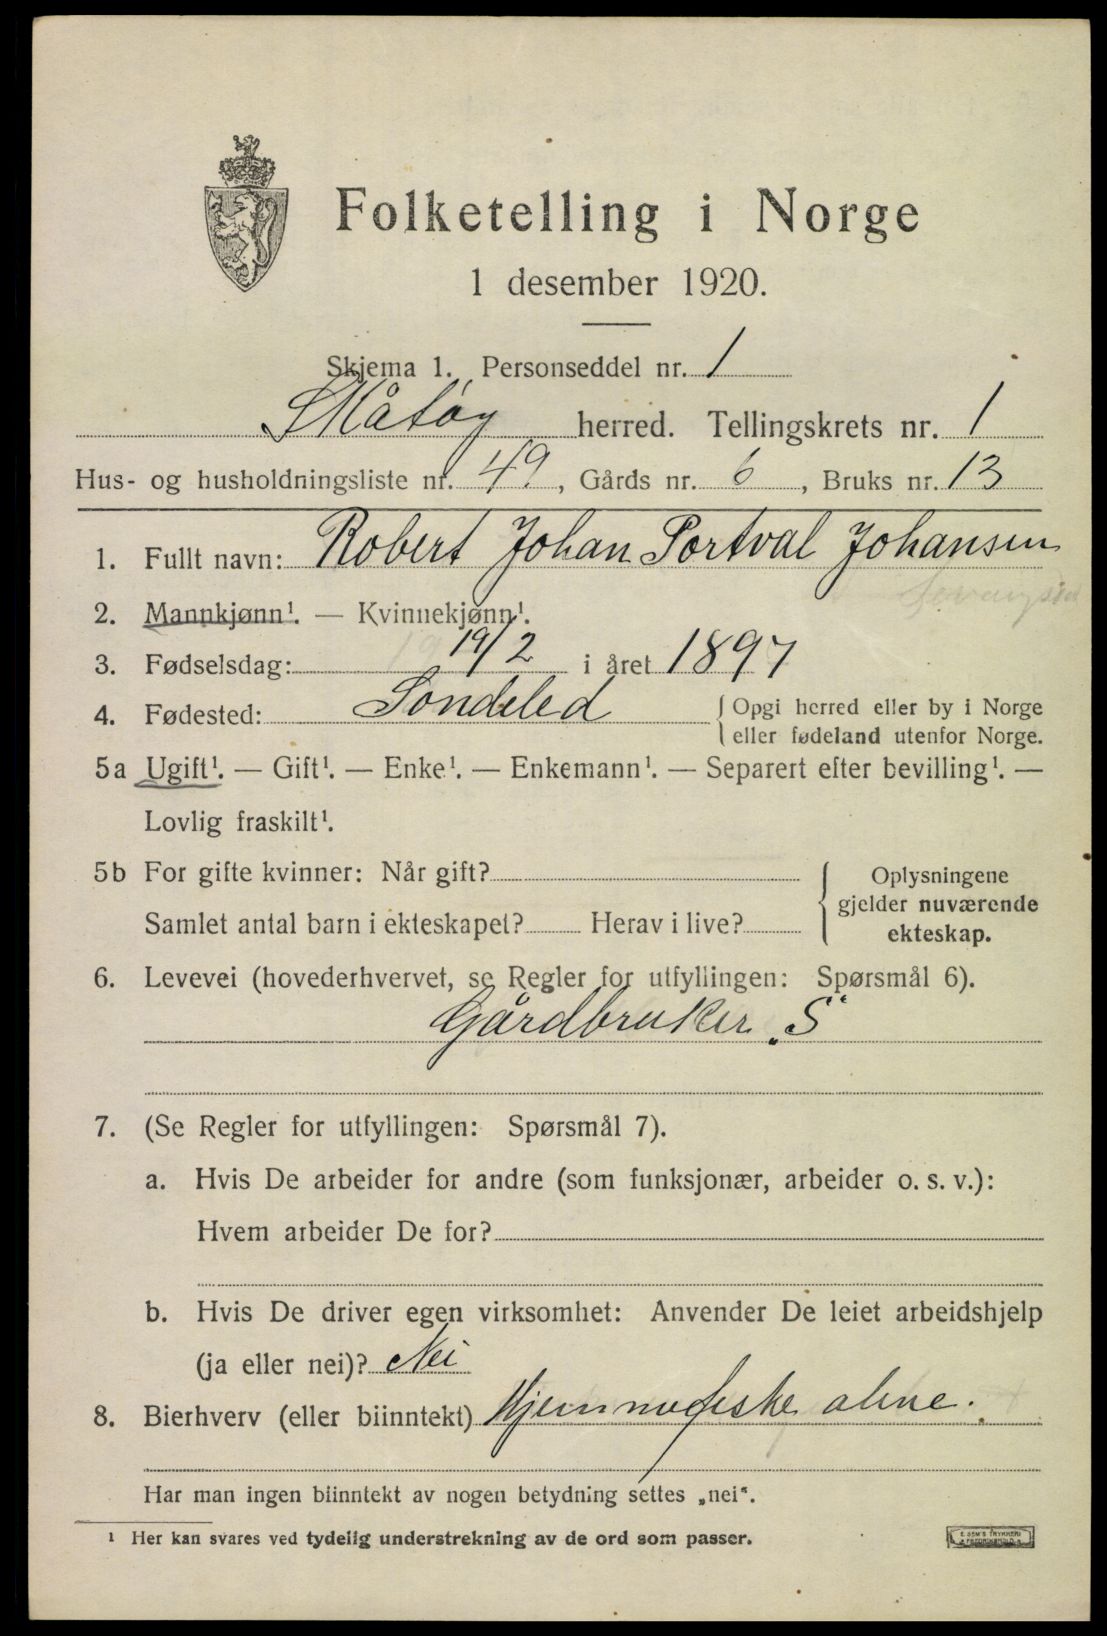 Folketelling i Norge
1 desember 1920.
Skjema 1. Personseddel nr. 1
Skåtøy herred. Tellingskrets nr. 1
Hus- og husholdningsliste nr. 49, Gårds nr. 6, Bruks nr. 13
1. Fullt navn: Robert Johan Portval Johansen
2. Mannkjønn¹. — Kvinnekjønn¹.
3. Fødselsdag: 19/2 i året 1897
4. Fødested: Sondeled { Opgi herred eller by i Norge
eller fødeland utenfor Norge.
5a Ugift¹. — Gift¹. — Enke¹. — Enkemann¹. — Separert efter bevilling¹. —
Lovlig fraskilt¹.
5b For gifte kvinner: Når gift?
Samlet antal barn i ekteskapet? Herav i live?
Oplysningene
gjelder nuværende
ekteskap.
6. Levevei (hovederhvervet, se Regler for utfyllingen: Spørsmål 6).
Gårdbruker „S“
7. (Se Regler for utfyllingen: Spørsmål 7).
a. Hvis De arbeider for andre (som funksjonær, arbeider o. s. v.):
Hvem arbeider De for?
b. Hvis De driver egen virksomhet: Anvender De leiet arbeidshjelp
(ja eller nei)? Nei
8. Bierhverv (eller biinntekt) Hjemmefiske alene.
Har man ingen biinntekt av nogen betydning settes „nei“.
¹ Her kan svares ved tydelig understrekning av de ord som passer.